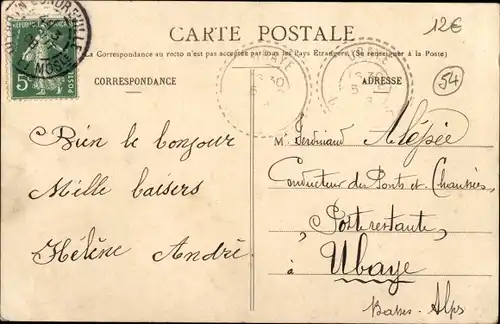 CARTE POSTALE
12€
La Correspondance au recto n'est pas acceptée par tous les Pays Étrangers. (Se renseigner à la Poste)
CORRESPONDANCE
ADRESSE
54
5
UBAYE
Bien le bonjour
Mille baisers
Hélène André
Mr Ferdinand Alépée
Conducteur des Ponts et Chaussées
„Poste restante„
à Ubaye
Basses-Alps